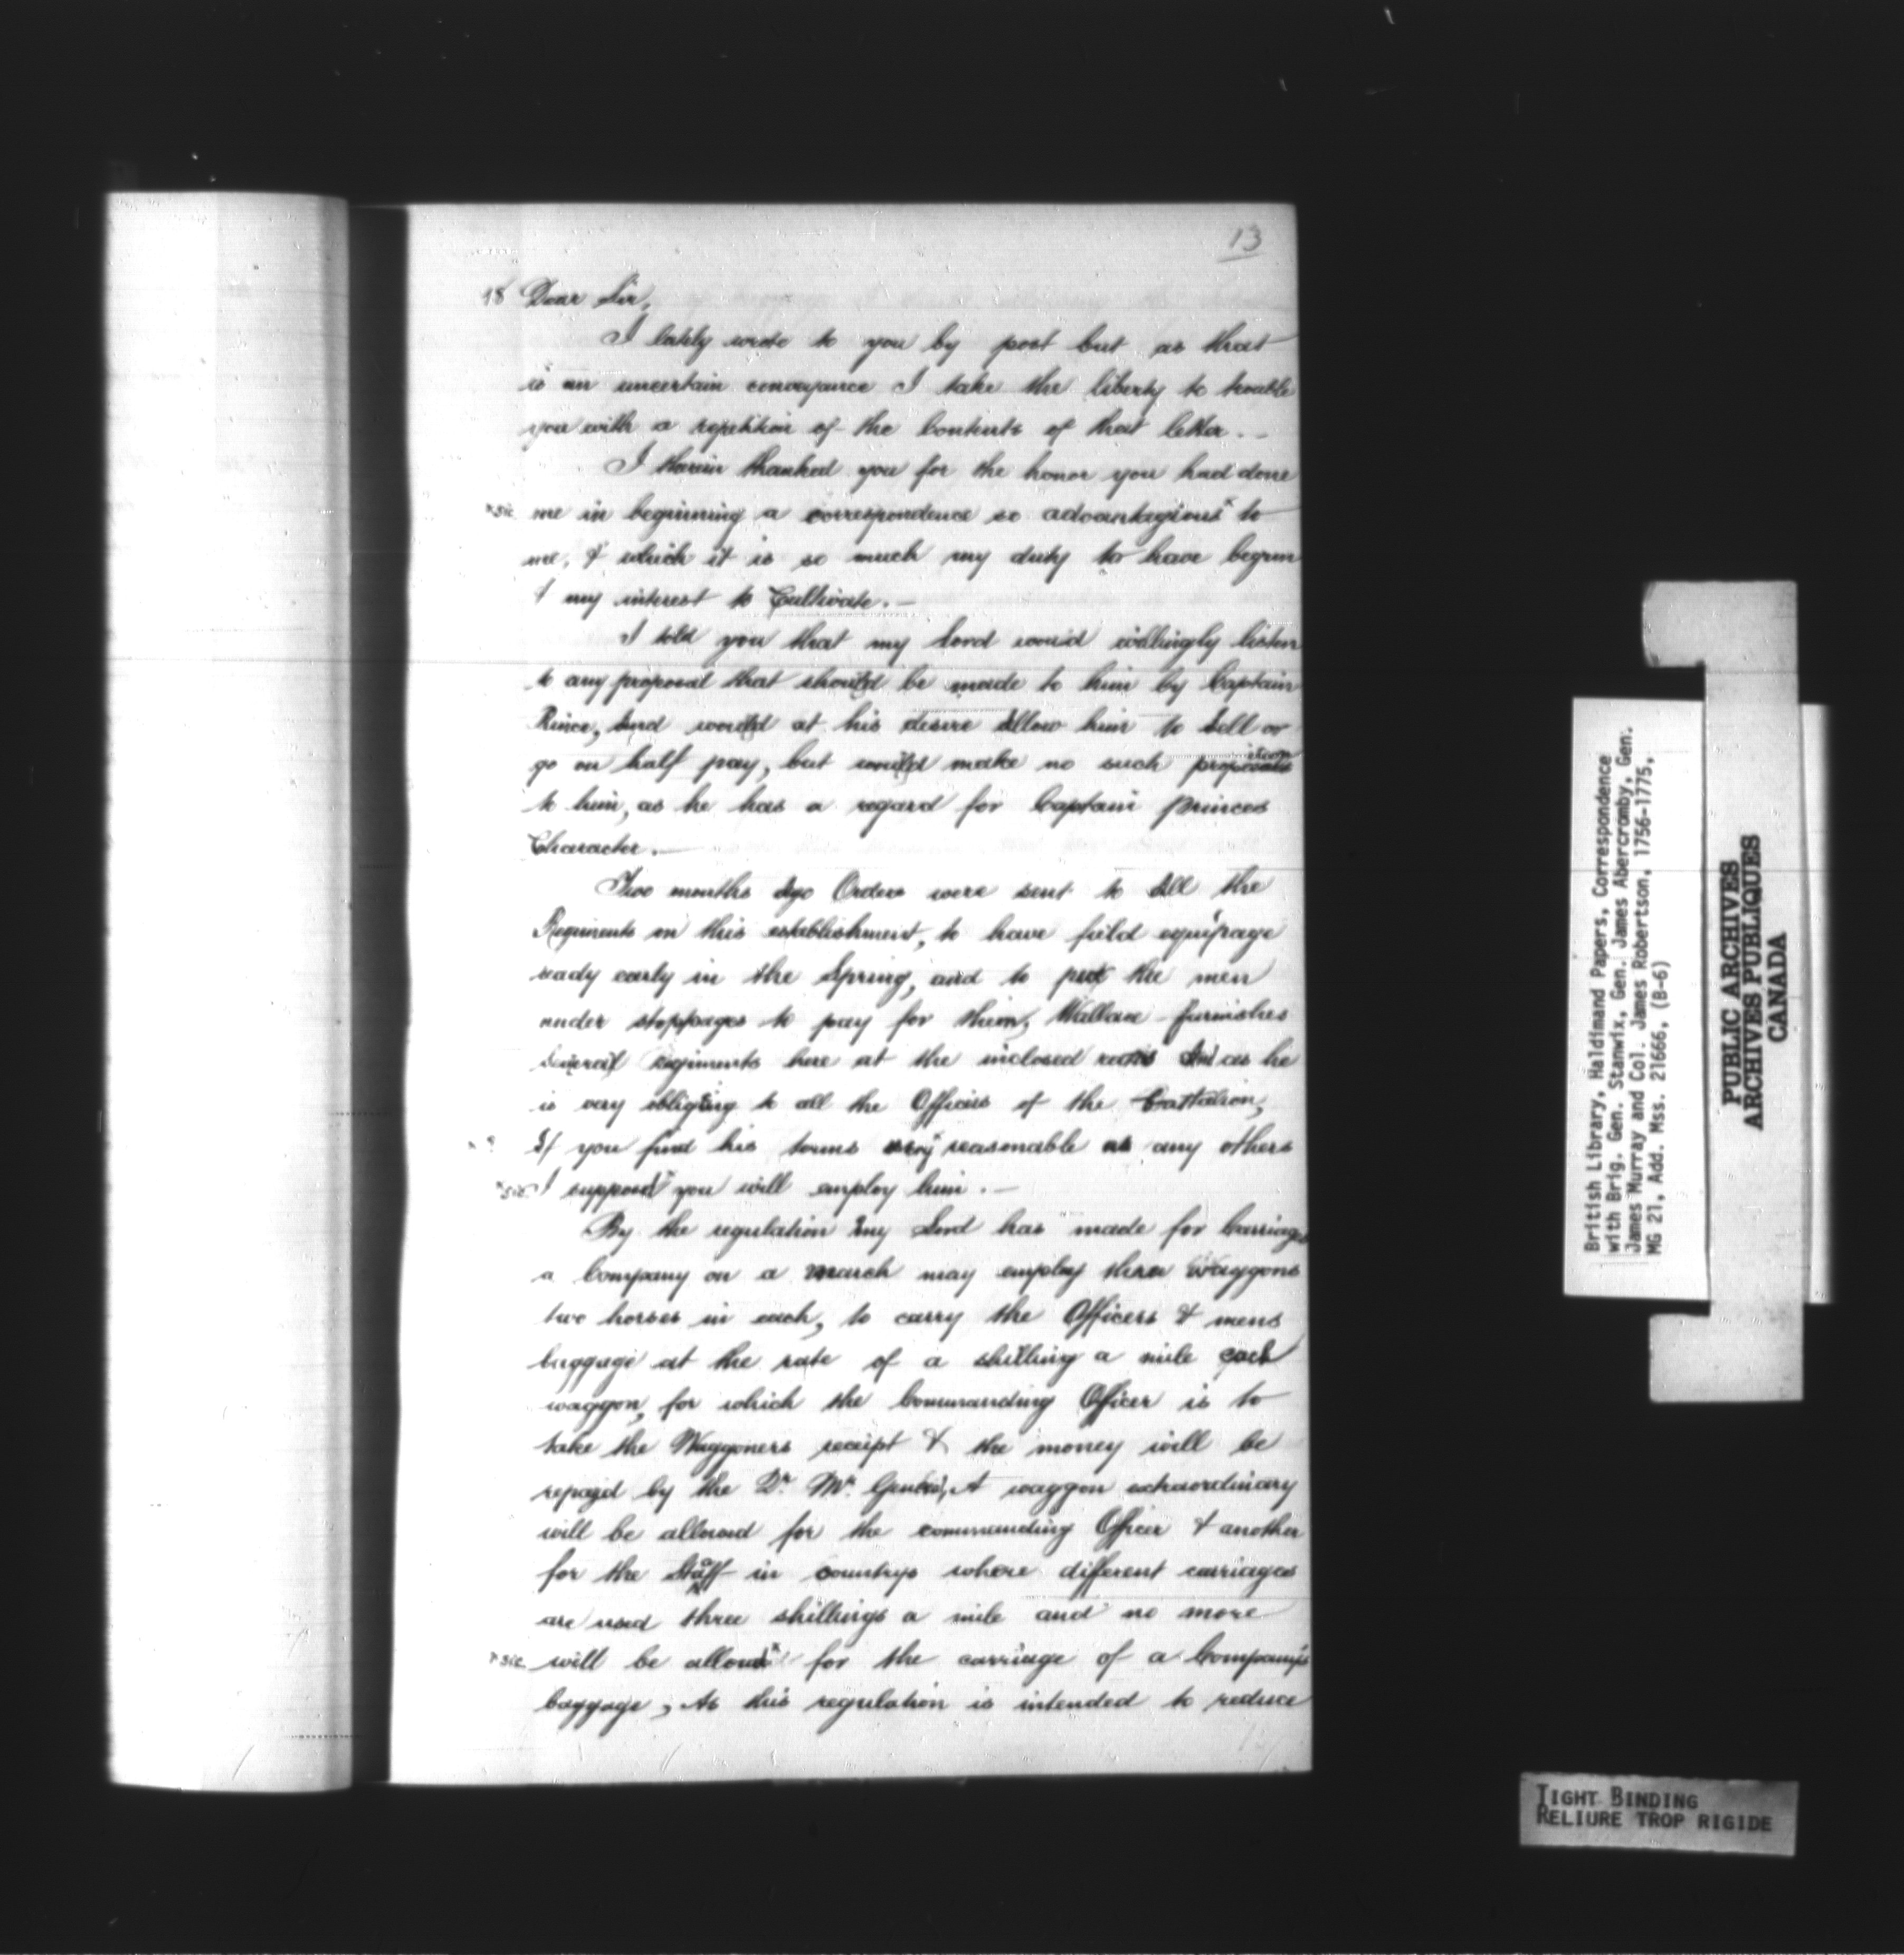 13
18 Dear Sir,
I lately wrote to you by post but as that
is an uncertain conveyance I take the liberty to trouble
you with a repetition of the Contents of that letter. —
I therein thanked you for the honor you had done
*sic me in beginning a correspondence so advantagious* to
me, & which it is so much my duty to have begun
& my interest to Cultivate. —
I told you that my Lord would willingly listen
to any proposal that should be made to him by Captain
Prince, And would at his desire Allow him to Sell or
go on half pay, but would make no such
to him, as he has a regard for Captain Princes
Character. —
Two months Ago Orders were sent to All the
Regiments on this establishment, to have field equipage
ready early in the Spring, and to put the men
under stoppages to pay for them, Wallace furnishes
Several regiments here at the inclosed And as he
is very obliging to all the Officers of the battalion,
If you find his terms reasonable as any others
*sic I suppose* you will employ him. —
By the regulation my Lord has made for Carriage
a Company on a march may employ three waggons
two horses in each, to carry the Officers & mens
baggage at the rate of a shilling a mile each
waggon, for which the Commanding Officer is to
take the Waggoners receipt & the money will be
repaid by the Dr. Mr. General, A waggon extraordinary
will be allowed for the commanding Officer & another
for the Staff in countrys where different carriages
are used three shillings a mile and no more
*sic will be allow'd* for the carriage of a Company's
baggage, As this regulation is intended to reduce
British Library, Haldimand Papers, Correspondence
with Brig. Gen. Stanwix, Gen. James Abercromby, Gen.
James Murray and Col. James Robertson, 1756-1775,
MG 21, Add. Mss. 21666, (B-6)
PUBLIC ARCHIVES
ARCHIVES PUBLIQUES
CANADA
TIGHT BINDING
RELIURE TROP RIGIDE